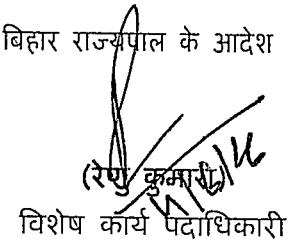 बिहार राज्यपाल के आदेश
(रेणु कुमारी)
विशेष कार्य पदाधिकारी